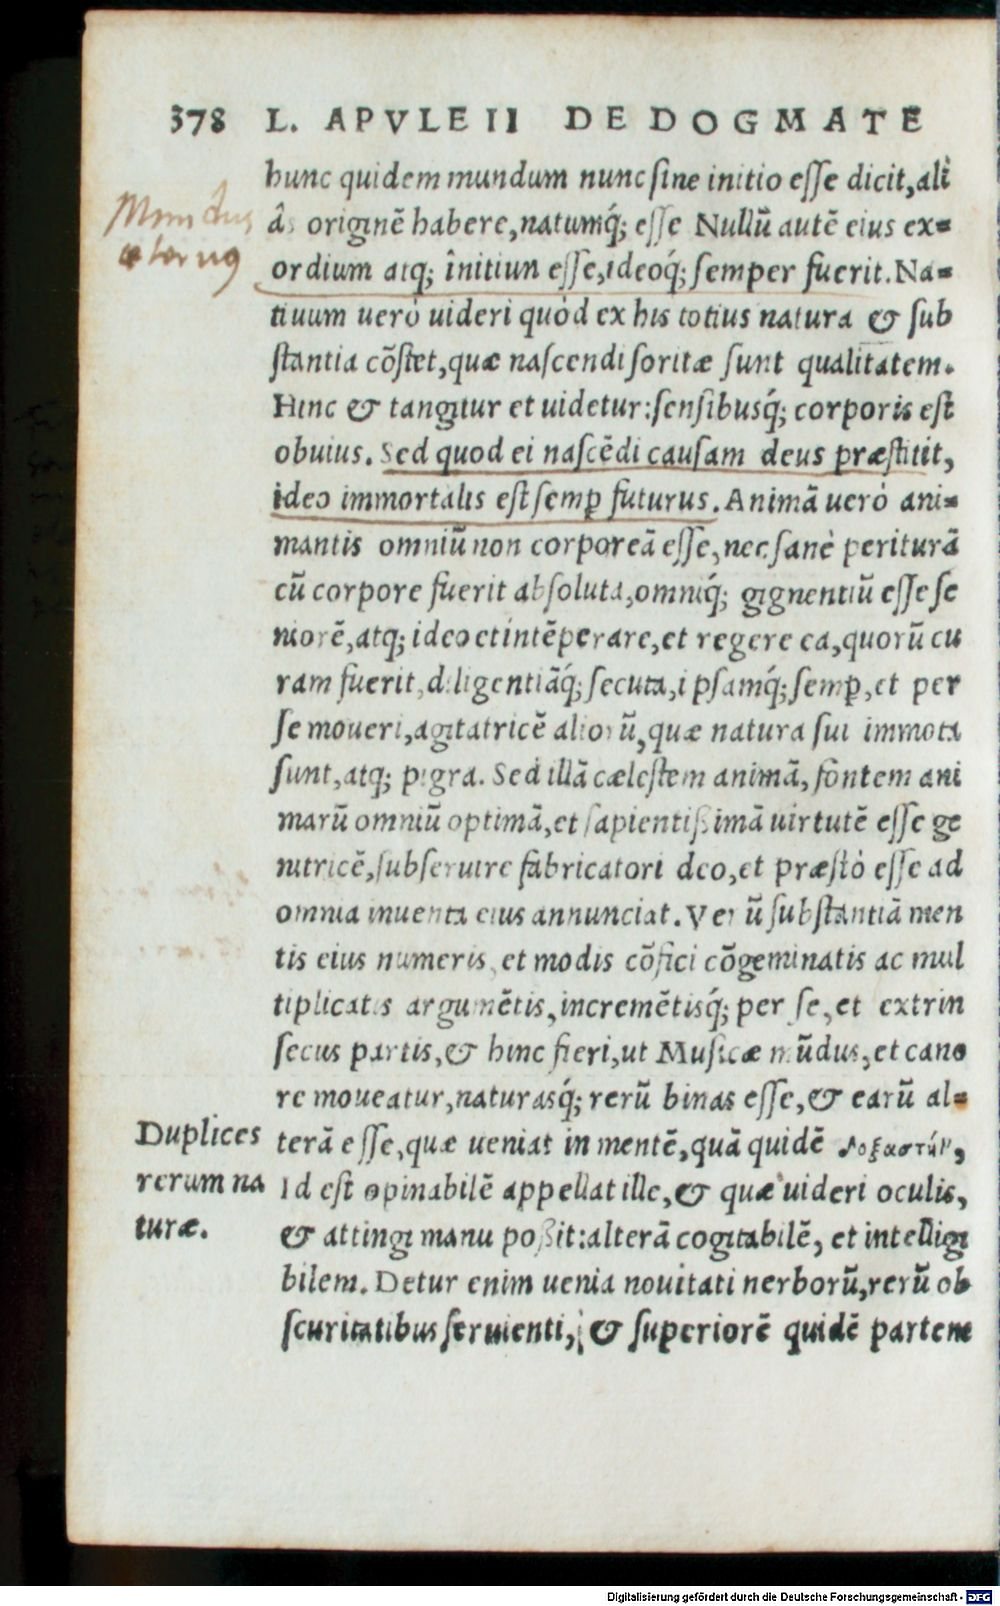 378 L. APVLEII DE DOGMATE
hunc quidem mundum nunc ſine initio eſſe dicit, ali
âs originē habere, natumq́; eſſe Nullū autē eius ex=
ordium atq; înitiun eſſe, ideoq́; ſemper fuerit. Na=
tiuum uerò uideri quòd ex his totius natura & ſub
ſtantia cōſtet, quæ naſcendi ſoritæ ſunt qualitatem.
Hinc & tangitur et uidetur: ſenſibusq́; corporis eſt
obuius. Sed quod ei naſcēdi cauſam deus præſtitit,
ideo immortalis eſt ſemꝑ futurus. Animā uerò ani=
mantis omniū non corporeā eſſe, nec ſanè perituraā
cū corpore fuerit abſoluta, omniq́; gignentiū eſſe ſe
niorē, atq; ideo et intēperare, et regere ea, quorū cu
ram fuerit, diligentiāq́; ſecuta, ipſamq́; ſemꝑ, et per
ſe moueri, agitatricē aliorū, quæ natura ſui immota
ſunt, atq; pigra. Sed illā cæleſtem animā, fontem ani
marū omniū optimā, et ſapientiſsimā uirtutē eſſe ge
nitricē, ſubſeruire fabricatori deo, et præſtò eſſe ad
omnia inuenta eius annunciat. Verū ſubſtantiā men
tis eius numeris, et modis cōfici cōgeminatis ac mul
tiplicatis argumētis, incremētisq́; per ſe, et extrin
ſecus partis, & hinc fieri, ut Muſicæ mūdus, et cano
re moueatur, naturasq́; rerū binas eſſe, & earū al=
terā eſſe, quæ ueniat in mentē, quā quidē δοξαστὴν,
Id eſt opinabilē appellat ille, & quæ uideri oculis,
& attingi manu poßit: alterā cogitabilē, et intelligi
bilem. Detur enim uenia nouitati nerborū, rerū ob
ſcuritatibus ſeruienti, & ſuperiorē quidē partem
Mundus
æternus
Duplices
rerum na
turæ.
Digitalisierung gefördert durch die Deutsche Forschungsgemeinschaft - DFG